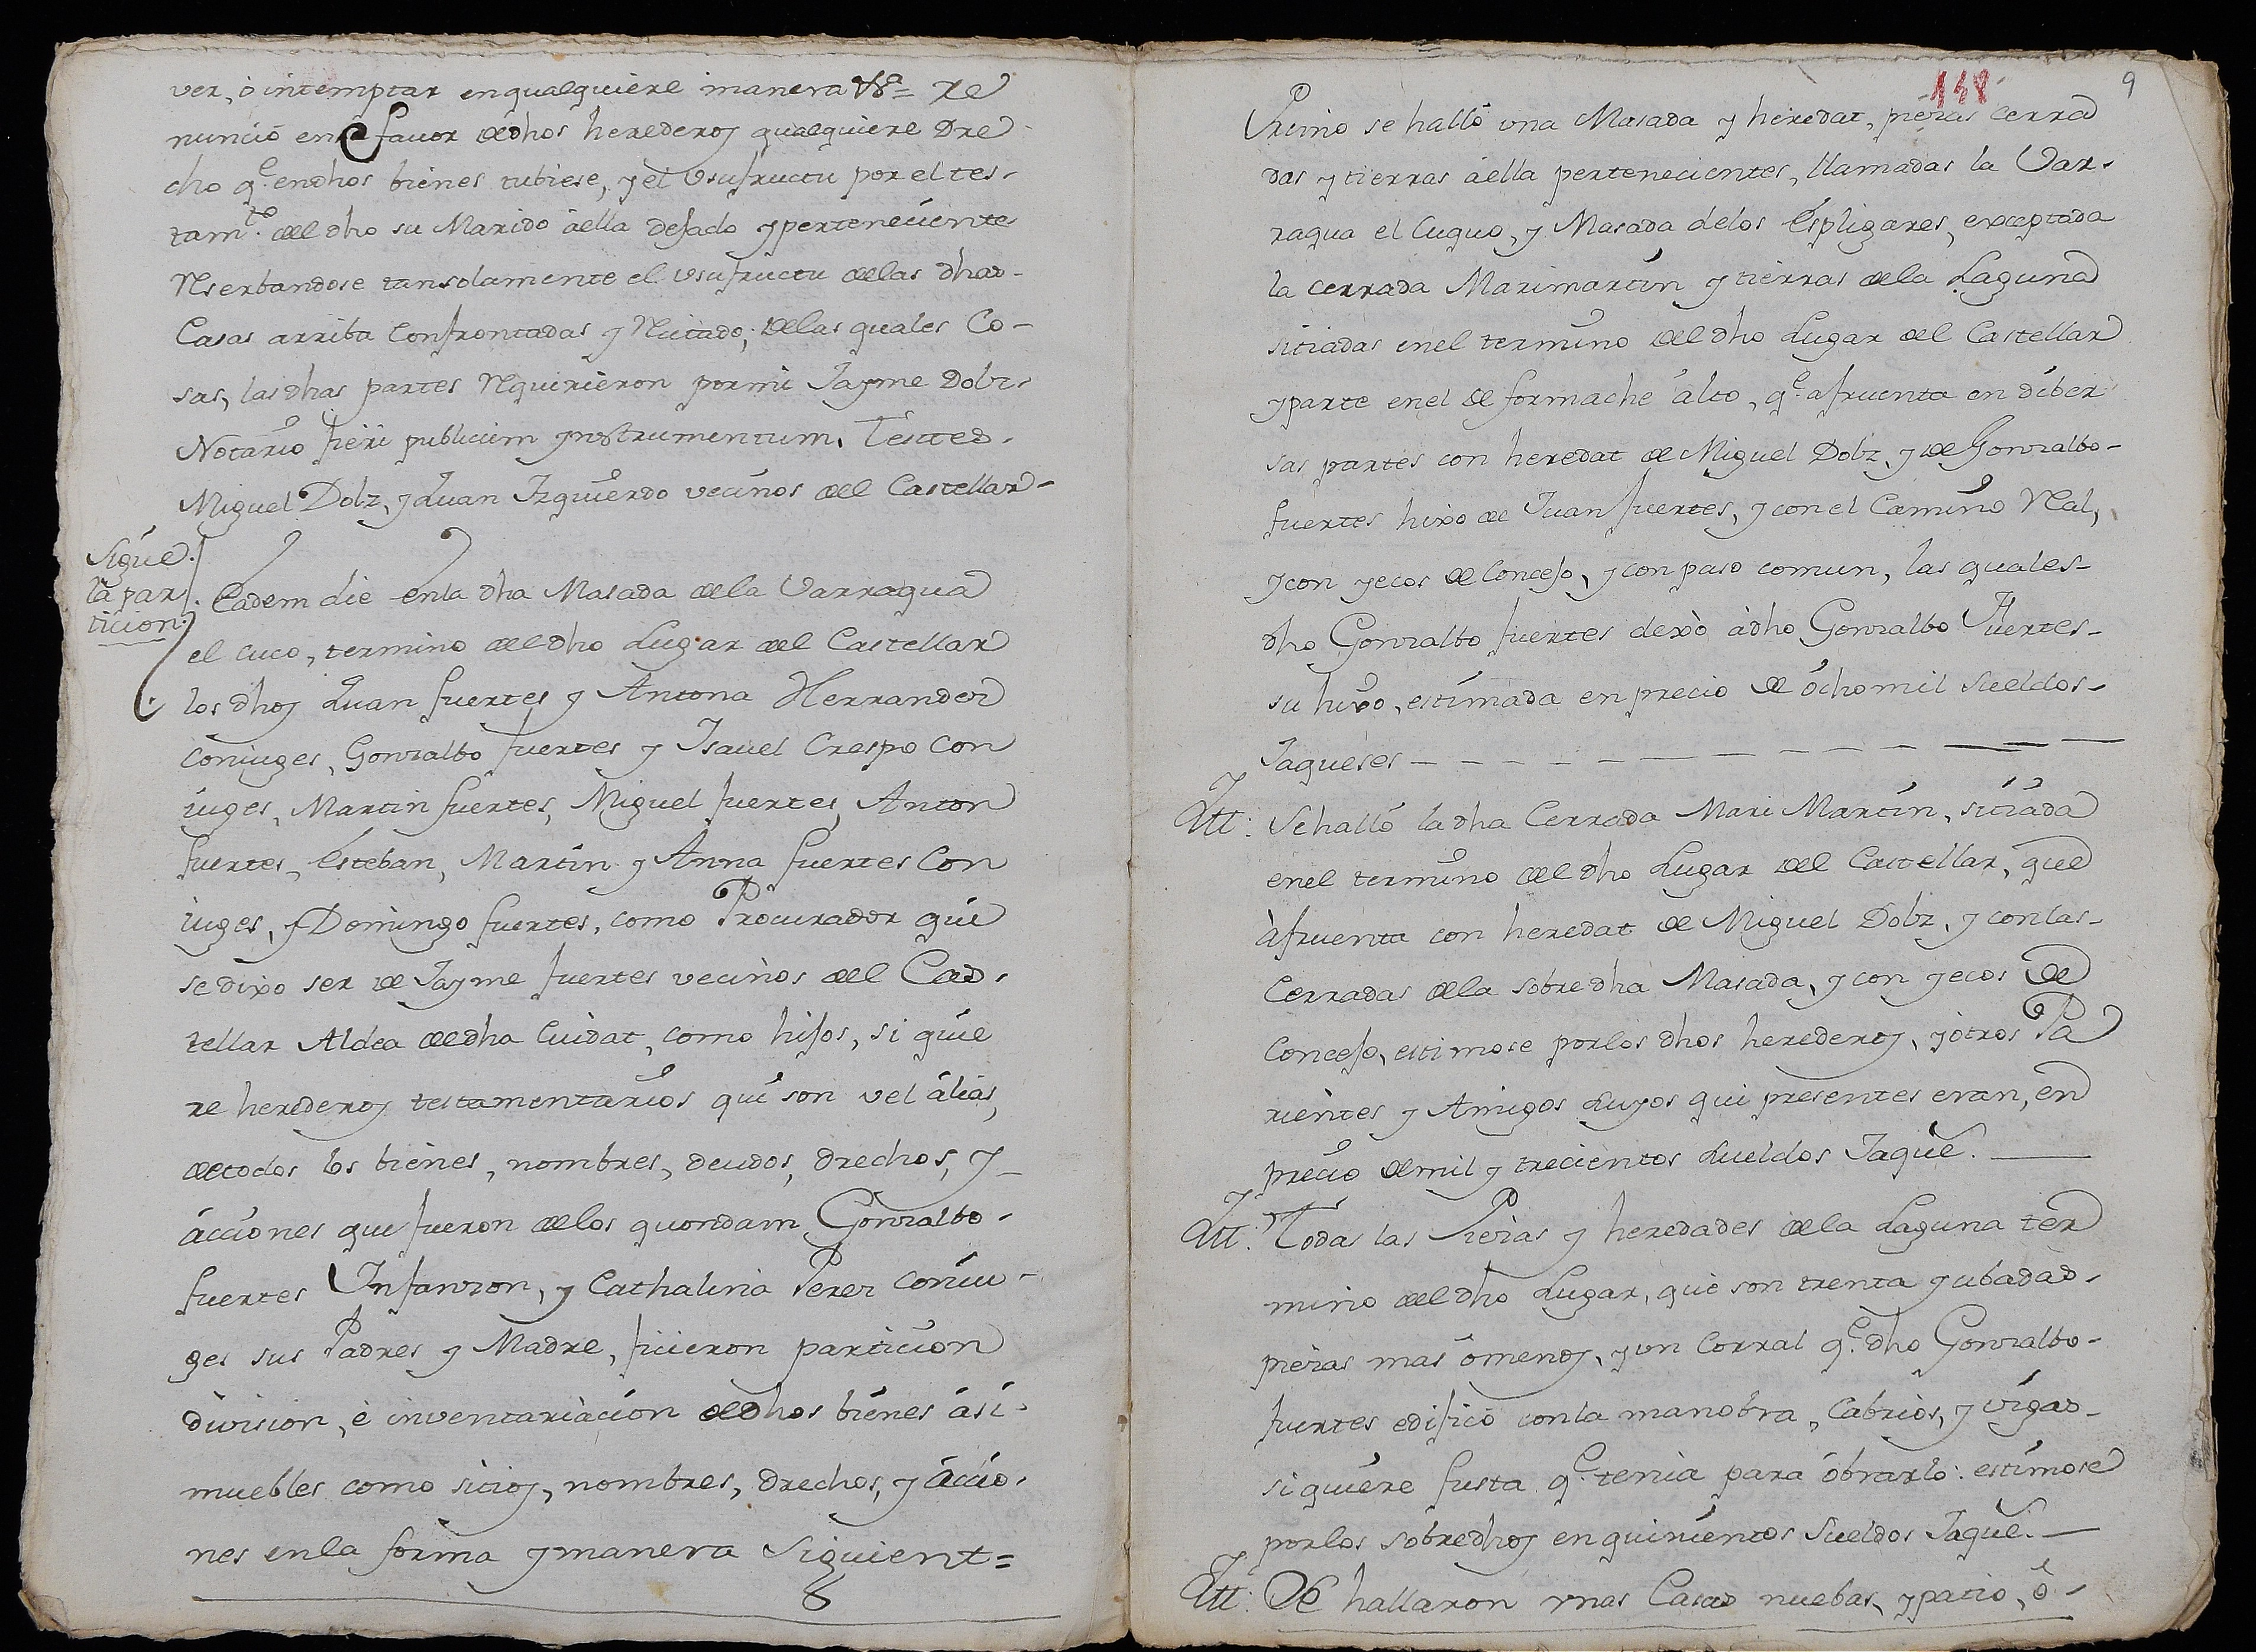 ver, ò intemptar en qualquiere manera Vª= Re
nunciò en favor dedhos herederos qualquiere Dre
cho q.e endhos bienes tubiese, y el Vsufructu por el tes-
tam.to del dho su Marido àella dejado y perteneciente
Reserbandose tansolamente el vsufructu delas dhas-
Casas arriba Confrontadas y Recitado; delas quales Co-
sas, las dhas partes Requirieron por mi Jayme Dolz-
Notario fieri publicum ynstrumentum. Testes-
Miguel Dolz, y Juan Izquierdo vecinos del Castellar-
Sigue
la par
ticion.
Eadem die enla dha Masada dela Varragua
el cuco, termino deldho Lugar del Castellar
los dhos Juan fuertes y Antona Herrandez
coniuges, Gonzalbo fuertes y Isavel Crespo Con
iuges, Martin fuertes, Miguel fuertes, Anton
fuertes, Esteban, Martin y Anna fuertes Con
iuges, y Domingo fuertes, como Procurador que
se dixo ser de Jayme fuertes vecinos del Cas-
tellar Aldea dedha Ciudat, como hijos, si quie
re herederos testamentarios qui son vel àlias,
detodos los bienes, nombres, deudos, drechos, y-
àcciones que fueron delos quondam Gonzalbo-
fuertes Infanzon, y Cathalina Perez Coniu-
ges sus Padres y Madre, ficieron particion
division, è inventariàcion dedhos bienes àsi-
muebles como sitios, nombres, drechos, y àccio-
nes enla forma y manera Siguient=
148 9
Primo se hallò vna Masada y heredat, piezas cerra
das y tierras àella pertenecientes, llamadas la Var-
ragua el Cuquo, y Masada delos Espligares, exceptada
la cerrada Marimartin y tierras dela Laguna
sitiadas enel termino deldho Lugar del Castellar
y parte enel de formache àlto, q.e afruenta en diber
sas partes con heredat de Miguel Dolz, y de Gonzalbo-
fuertes hixo de Juan fuertes, y con el Camino Real,
y con yecos de Concejo, y con paso comun, las quales-
dho Gonzalbo fuertes dexò àdho Gonzalbo Fuertes-
su hixo, estimada en precio de òchomil sueldos-
Jaqueses
Itt: Sehallò la dha Cerrada Mari Martin, sitiada
enel termino del dho Lugar del Castellar, que
àfruenta con heredat de Miguel Dolz, y con las-
Cerradas dela sobredha Masada, y con yecos de
Concejo, estimose porlos dhos herederos, y òtros Pa
rientes y Amigos suyos qui presentes eran, en
precio demil y trecientos sueldos Jaque.
Itt: Todas las Piezas y heredades dela Laguna ter
mino deldho Lugar, que son trenta yubadas-
piezas mas òmenos, y vn Corral q.e dho Gonzalbo-
fuertes edificò conla manobra, Cabrios, y vigas-
si quiere fusta q.e tenia para òbrarlo: estimose
porlos sobredhos en quinientos Sueldos Jaque.
Itt: Se hallaron vnas Casas nuebas, y patio, ò-